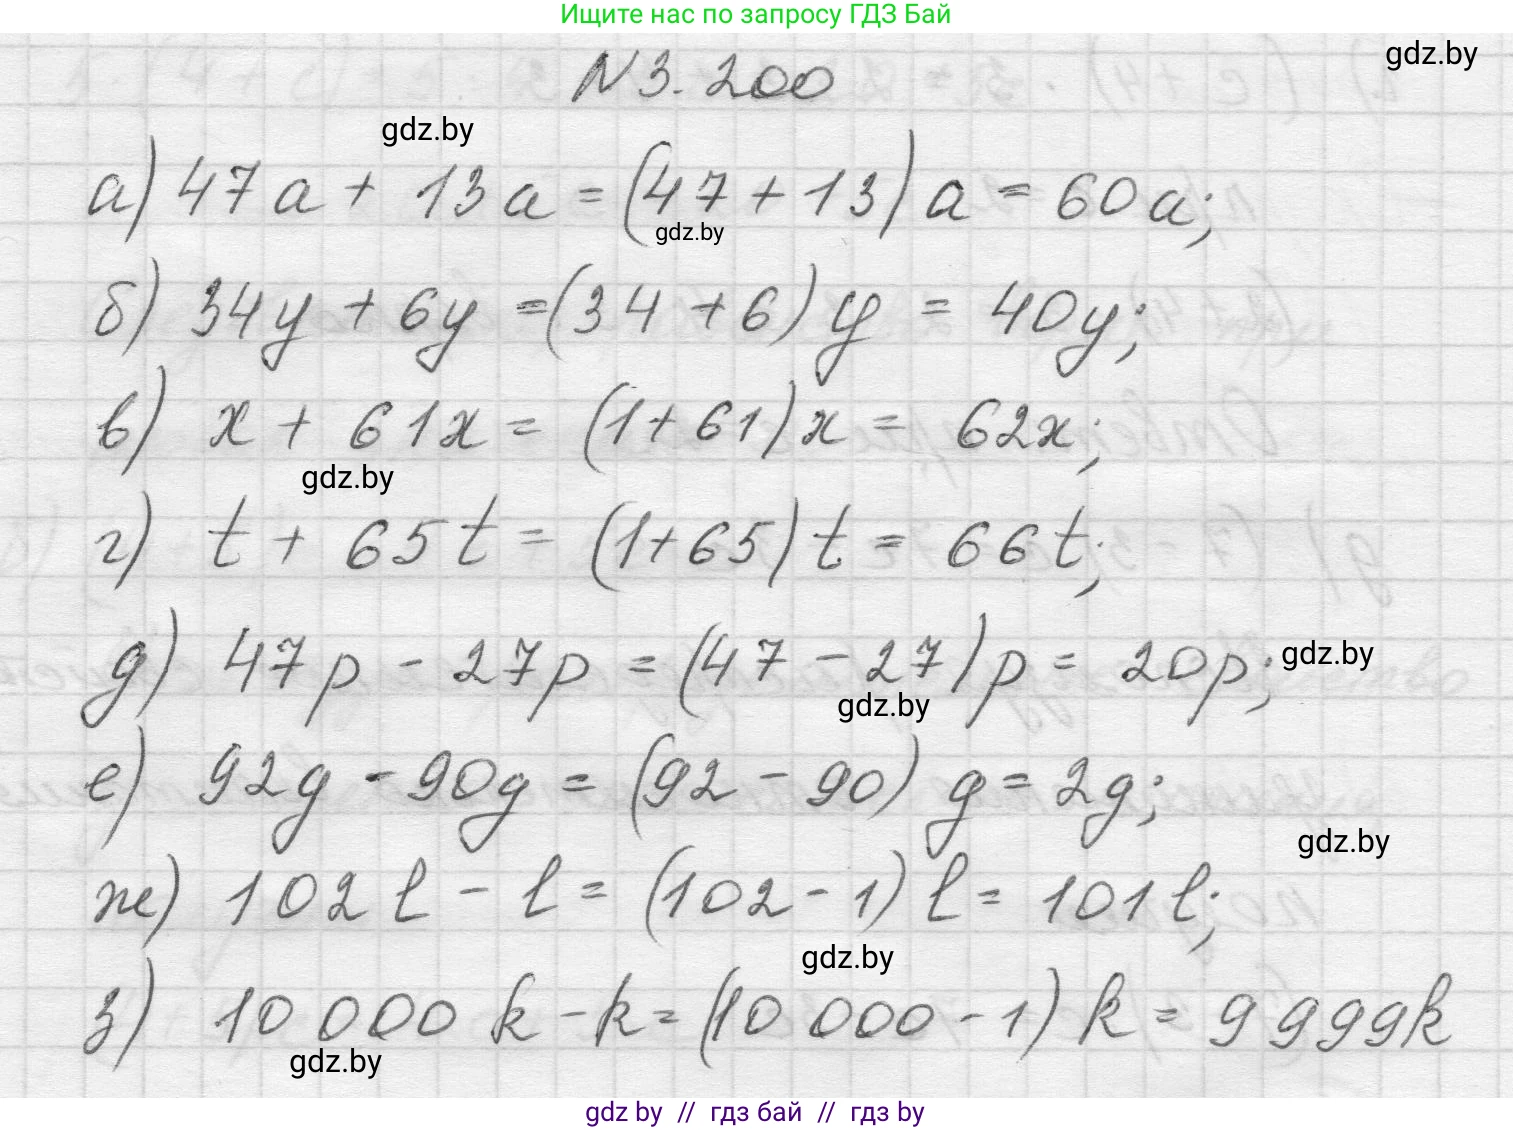 Ищите нас по запросу ГДЗ Бай
gdz.by
N 3.200
gdz.by
а) 47a + 13a = (47 + 13) a = 60a;
gdz.by
б) 34y + 6y = (34 + 6) y = 40y;
в) x + 61x = (1 + 61) x = 62x;
gdz.by
г) t + 65t = (1 + 65) t = 66t;
д) 47p - 27p = (47 - 27) p = 20p;
gdz.by
gdz.by
е) 92g - 90g = (92 - 90) g = 2g;
gdz.by
ж) 102 l - l = (102 - 1) l = 101 l;
gdz.by
з) 10 000 k - k = (10 000 - 1) k = 9 999k
gdz.by
gdz by // гдз бай // гдз by